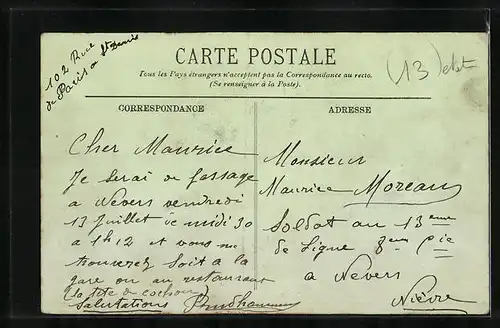 102 Rue
de Paris a St Denis
CARTE POSTALE
(13)
Tous les Pays étrangers n'acceptent pas la Correspondance au recto.
(Se renseigner à la Poste).
CORRESPONDANCE
Cher Maurice
Je serai de passage
a Nevers vendredi
13 Juillet de midi 30
a 1h12 et vous me
trouverez soit a la
gare ou au restaurant
(la tete de cochon)
Salutations Prudhomme
ADRESSE
Monsieur
Maurice Moreau
Soldat au 13eme
de Ligne 8eme Cie
a Nevers
Nièvre